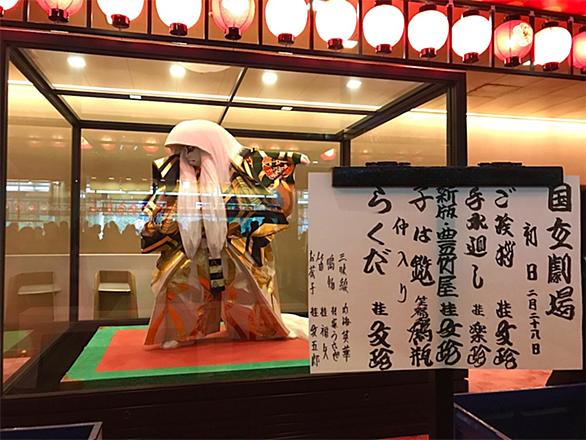 国立劇場
初日 二月二十八日
ご挨拶 桂文珍
手水廻し 桂楽珍
新版・豊竹屋 桂文珍
子は鎹 笑福亭鶴瓶
仲入り
らくだ 桂文珍
三味線 内海英華
鳴物
笛 桂
お茶子 桂文五郎